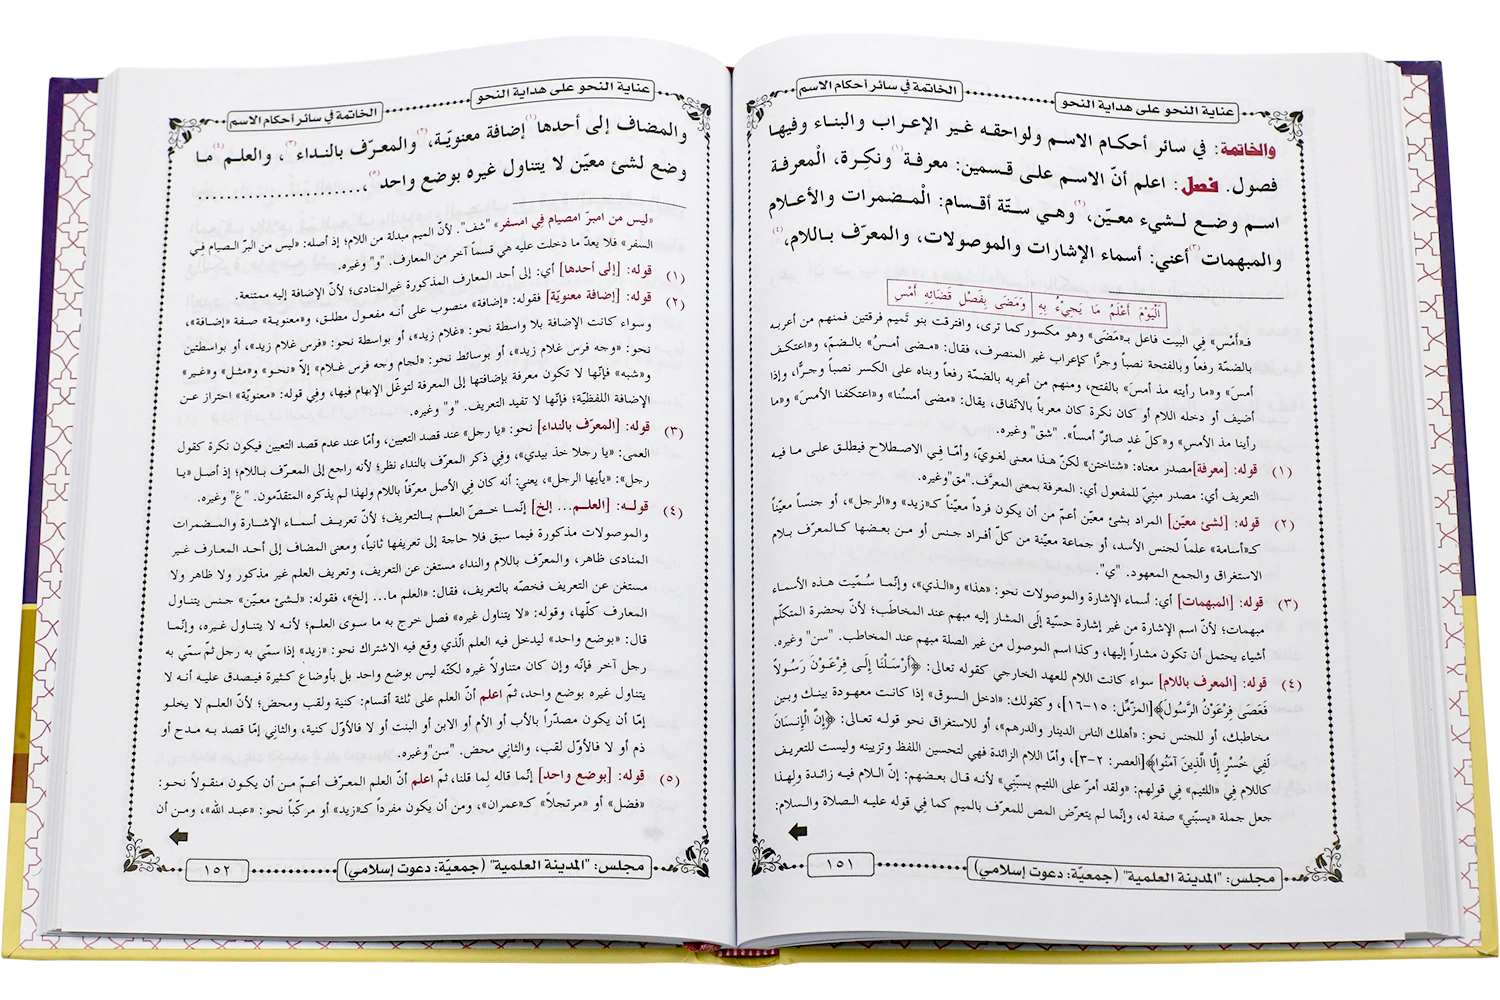 عناية النحو على هداية النحو
الخاتمة في سائر أحكام الاسم
والخاتمة: في سائر أحكام الاسم ولواحقه غير الإعراب والبناء وفيها
فصول. فصل: اعلم أنّ الاسم على قسمين: معرفة(١) ونكرة، الْمعرفة
اسم وضع لشيء معيّن،(٢) وهي ستّة أقسام: الْمضمرات والأعلام
والمبهمات(٣) أعني: أسماء الإشارات والموصولات، والمعرّف باللام،(٤)
اَلْيَوْمَ أَعْلَمُ مَا يَجِيْءُ بِهِ وَمَضَى بِفَصْلِ قَضَائِهِ أَمْسِ
فـ«أَمْسِ» فِي البيت فاعل بـ«مَضَى» وهو مكسور كما ترى، وافترقت بنو تَميم فرقتين فمنهم من أعربه
بالضمّة رفعاً وبالفتحة نصباً وجرًّا كإعراب غير المنصرف، فقال: «مضى أمسُ» بالضمّ، و«اعتكف
أمسَ» و«ما رأيته مذ أمسَ» بالفتح، ومنهم من أعربه بالضمّة رفعاً وبناه على الكسر نصباً وجرًّا، وإذا
أضيف أو دخله اللام أو كان نكرة كان معرباً بالاتّفاق، يقال: «مضى أمسُنا» و«اعتكفنا الأمسَ» و«ما
رأينا مذ الأمسِ» و«كلّ غدٍ صائرٌ أمساً». "شق" وغيره.
(١) قوله: [معرفة] مصدر معناه: «شناختن» لكنّ هذا معنى لغويّ، وأمّا فِي الاصطلاح فيطلق على ما فيه
التعريف أي: مصدر مبنِيّ للمفعول أي: المعرفة بمعنى المعرَّف."مق"وغيره.
(٢) قوله: [لشئ معيّن] المراد بشئ معيّن أعمّ من أن يكون فرداً معيّناً كـ«زيد» و«الرجل»، أو جنساً معيّناً
كـ«أسامة» علماً لجنس الأسد، أو جماعة معيّنة من كلّ أفراد جنس أو من بعضها كالمعرّف بلام
الاستغراق والجمع المعهود. "ي".
(٣) قوله: [المبهمات] أي: أسماء الإشارة والموصولات نحو: «هذا» و«الذي»، وإنّما سُمّيت هذه الأسماء
مبهمات؛ لأنّ اسم الإشارة من غير إشارة حسيّة إلَى المشار إليه مبهم عند المخاطَب؛ لأنّ بحضرة المتكلّم
أشياء يحتمل أن تكون مشاراً إليها، وكذا اسم الموصول من غير الصلة مبهم عند المخاطب. "سن" وغيره.
(٤) قوله: [المعرف باللام] سواء كانت اللام للعهد الخارجي كقوله تعالى: ﴿أَرْسَلْنَا إِلَى فِرْعَوْنَ رَسُولاً
فَعَصَى فِرْعَوْنُ الرَّسُولَ﴾[المزّمّل: ١٥-١٦]، وكقولك: «ادخل السوق» إذا كانت معهودة بينك وبين
مخاطبك، أو للجنس نحو: «أهلك الناس الدينار والدرهم»، أو للاستغراق نحو قوله تعالى: ﴿إِنَّ الْإِنسَانَ
لَفِي خُسْرٍ إِلَّا الَّذِينَ آمَنُوا﴾[العصر: ٢-٣]، وأمّا اللام الزائدة فهي لتحسين اللفظ وتزيينه وليست للتعريف
كاللام فِي «اللئيم» فِي قولِهم: «ولقد أمرّ على اللئيم يسبّنِي» لأنه قال بعضهم: إنّ اللام فيه زائدة ولِهذا
جعل جملة «يسبّني» صفة له، وإنّما لم يتعرّض المص للمعرّف بالميم كما فِي قوله عليه الصلاة والسلام:
مجلس: "المدينة العلمية" (جمعيّة: دعوت إسلامي)
١٥١
عناية النحو على هداية النحو
الخاتمة في سائر أحكام الاسم
والمضاف إلى أحدها(١) إضافة معنويّة،(٢) والمعرّف بالنداء(٣)، والعلم(٤) ما
وضع لشئ معيّن لا يتناول غيره بوضع واحد(٥)،
«ليس من امبرّ امصيام فِي امسفر» "شف". لأنّ الميم مبدلة من اللام؛ إذ أصله: «ليس من البرّ الصيام فِي
السفر» فلا يعدّ ما دخلت عليه هي قسماً آخر من المعارف. "و" وغيره.
(١) قوله: [إلى أحدها] أي: إلى أحد المعارف المذكورة غير المنادى؛ لأنّ الإضافة إليه ممتنعة.
(٢) قوله: [إضافة معنويّة] فقوله: «إضافة» منصوب على أنه مفعول مطلق، و«معنوية» صفة «إضافة»،
وسواء كانت الإضافة بلا واسطة نحو: «غلام زيد»، أو بواسطة نحو: «فرس غلام زيد»، أو بواسطتين
نحو: «وجه فرس غلام زيد»، أو بوسائط نحو: «لجام وجه فرس غلام» إلاّ «نحو» و«مثل» و«غير»
و«شبه» فإنّها لا تكون معرفة بإضافتها إلى المعرفة لتوغّل الإبهام فيها، وفِي قوله: «معنويّة» احتراز عن
الإضافة اللفظيّة؛ فإنّها لا تفيد التعريف. "و" وغيره.
(٣) قوله: [المعرّف بالنداء] نحو: «يا رجل» عند قصد التعيين، وأمّا عند عدم قصد التعيين فيكون نكرة كقول
العمى: «يا رجلا خذ بيدي»، وفِي ذكر المعرّف بالنداء نظر؛ لأنه راجع إلى المعرّف باللام؛ إذ أصل «يا
رجل»: «يأيها الرجل»، يعني: أنه كان فِي الأصل معرّفاً باللام ولهذا لم يذكره المتقدّمون. "غ" وغيره.
(٤) قوله: [العلم... إلخ] إنّما خصّ العلم بالتعريف؛ لأنّ تعريف أسماء الإشارة والمضمرات
والموصولات مذكورة فيما سبق فلا حاجة إلى تعريفها ثانياً، ومعنى المضاف إلى أحد المعارف غير
المنادى ظاهر، والمعرّف باللام والنداء مستغن عن التعريف، وتعريف العلم غير مذكور ولا ظاهر ولا
مستغن عن التعريف فخصّه بالتعريف، فقال: «العلم ما... إلخ»، فقوله: «لشئ معيّن» جنس يتناول
المعارف كلّها، وقوله: «لا يتناول غيره» فصل خرج به ما سوى العلم؛ لأنه لا يتناول غيره، وإنّما
قال: «بوضع واحد» ليدخل فيه العلم الّذي وقع فيه الاشتراك نحو: «زيد» إذا سمّي به رجل ثمّ سمّي به
رجل آخر فإنّه وإن كان متناولاً غيره لكنّه ليس بوضع واحد بل بأوضاع كثيرة فيصدق عليه أنه لا
يتناول غيره بوضع واحد، ثمّ اعلم أنّ العلم على ثلثة أقسام: كنية ولقب ومحض؛ لأنّ العلم لا يخلو
إمّا أن يكون مصدّراً بالأب أو الأم أو الابن أو البنت أو لا فالأوّل كنية، والثانِي إمّا قصد به مدح أو
ذم أو لا فالأوّل لقب، والثانِي محض. "سن"وغيره.
(٥) قوله: [بوضع واحد] إنّما قاله لِما قلنا، ثمّ اعلم أنّ العلم المعرّف أعمّ من أن يكون منقولاً نحو:
«فضل» أو «مرتجلاً» كـ«عمران»، ومن أن يكون مفرداً كـ«زيد» أو مركّباً نحو: «عبد الله»، ومن أن
مجلس: "المدينة العلمية" (جمعيّة: دعوت إسلامي)
١٥٢